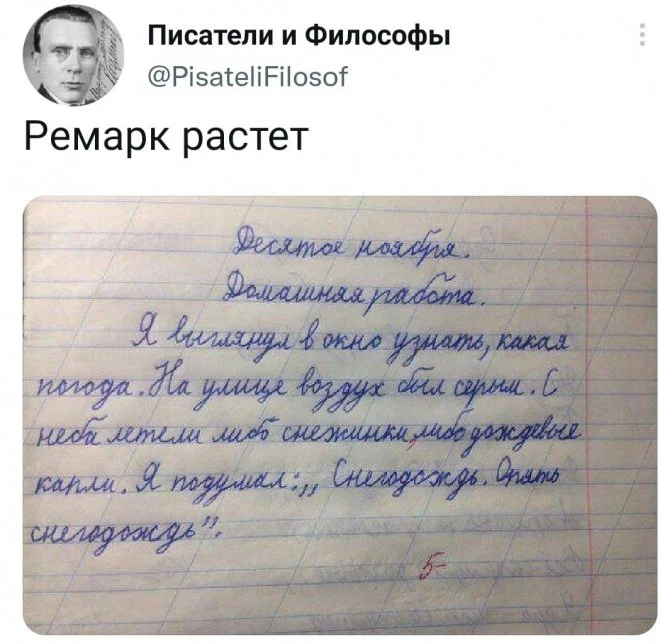 Писатели и Философы
@PisateliFilosof
Ремарк растет
Десятое ноября.
Домашняя работа.
Я выглянул в окно узнать, какая
погода. На улице воздух был серым. С
неба летели либо снежинки, либо дождевые
капли. Я подумал: „Снегодождь. Опять
снегодождь".
5-